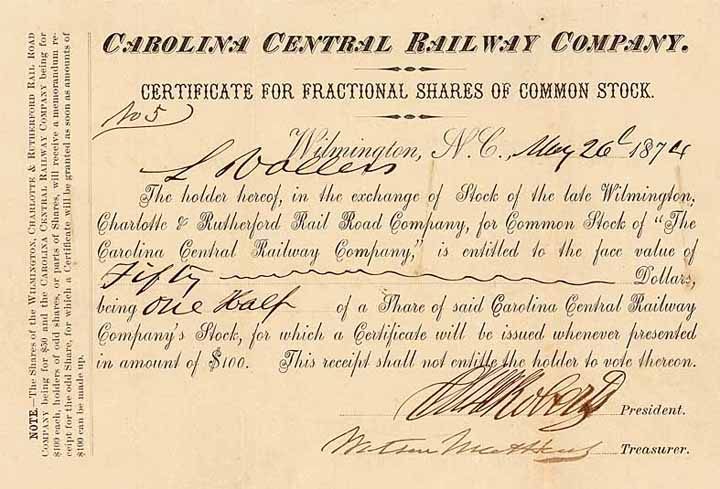 CAROLINA CENTRAL RAILWAY COMPANY.
CERTIFICATE FOR FRACTIONAL SHARES OF COMMON STOCK.
No 5
Wilmington, N. C., May 26th 1874
The holder hereof, in the exchange of Stock of the late Wilmington,
Charlotte & Rutherford Rail Road Company, for Common Stock of "The
Carolina Central Railway Company," is entitled to the face value of
Fifty Dollars,
being One Half of a Share of said Carolina Central Railway
Company's Stock, for which a Certificate will be issued whenever presented
in amount of $100. This receipt shall not entitle the holder to vote thereon.
President.
Treasurer.
NOTE.—The Shares of the WILMINGTON, CHARLOTTE & RUTHERFORD RAIL ROAD
COMPANY being for $50 and the CAROLINA CENTRAL RAILWAY COMPANY being for
$100 each, holders of odd shares, or parts of Shares, will receive a memorandum re-
ceipt for the odd Share, for which a Certificate will be granted as soon as amounts of
$100 can be made up.